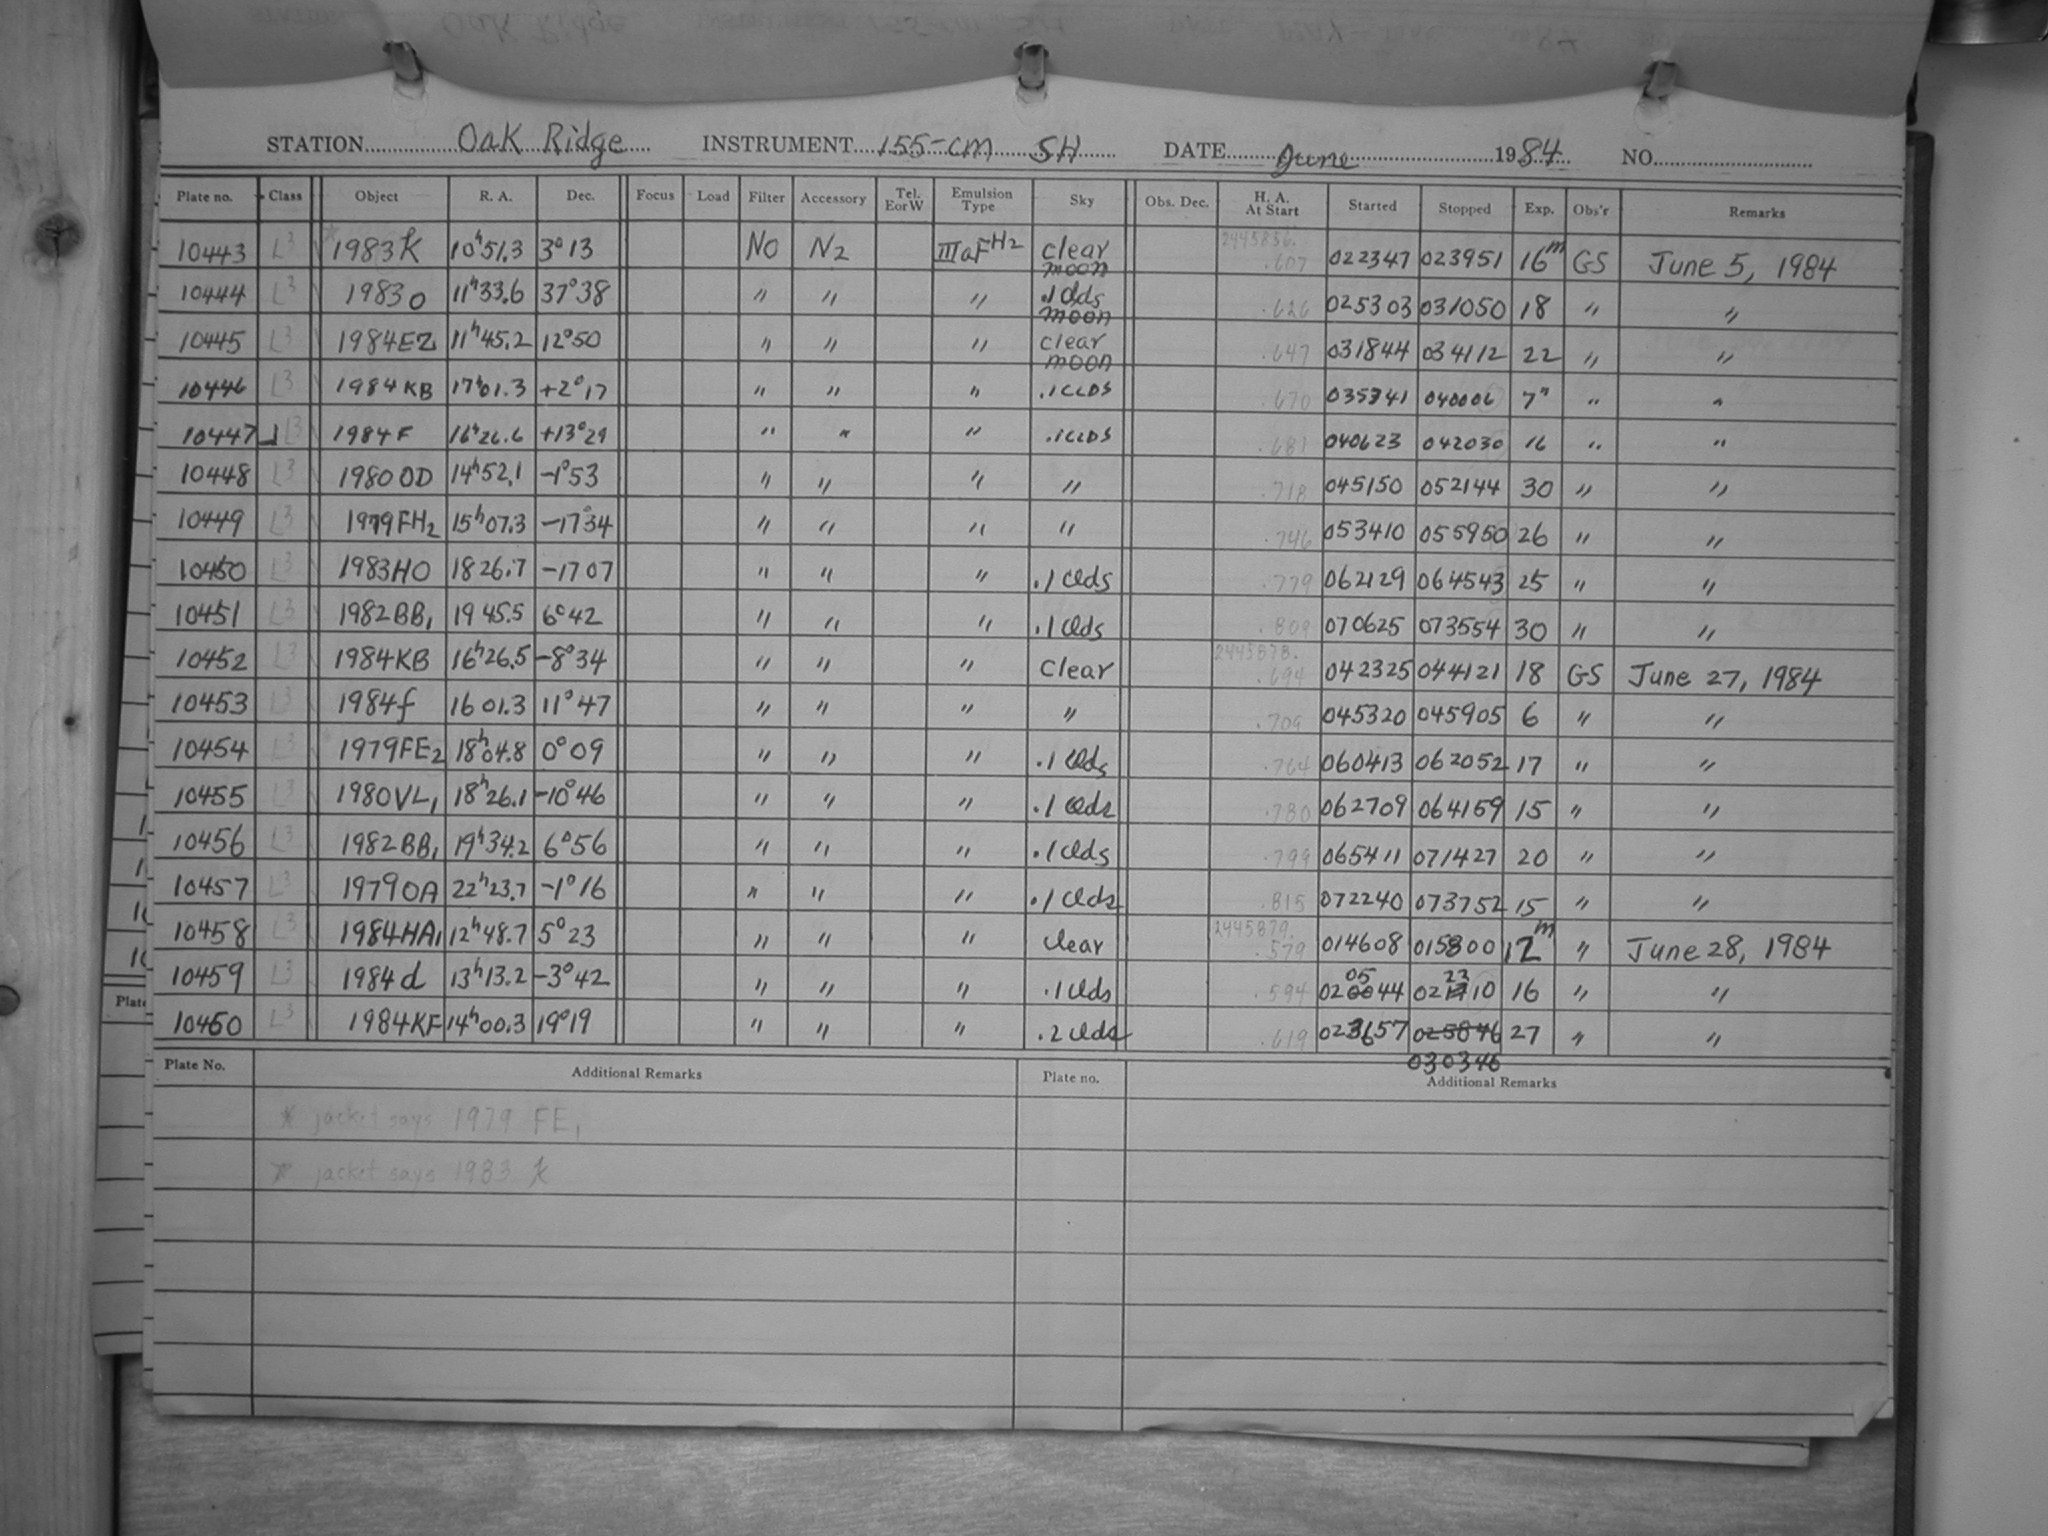 STATION Oak Ridge INSTRUMENT 155-cm SH DATE June 1984 NO.
Plate no. Class Object R. A. Dec. Focus Load Filter Accessory Tel. EorW Emulsion Type Sky Obs. Dec. H. A. At Start Started Stopped Exp. Obs'r Remarks
10443 L3 * 1983k 10h51.3 3°13 NO N2 IIIaF H2 clear moon 2445856. .607 022347 023951 16m GS June 5, 1984
10444 L3 1983o 11h33.6 37°38 " " " .1 clds moon .626 025303 031050 18 " "
10445 L3 1984EZ 11h45.2 12°50 " " " clear moon .647 031844 034112 22 " "
10446 L3 1984 KB 17h01.3 +2°17 " " " .1 CLDS .670 035341 040006 7" " "
10447 L3 1984 F 16h26.6 +13°29 " " " .1 CLDS .681 040623 042030 16 " "
10448 L3 1980 OD 14h52.1 -1°53 " " " " .718 045150 052144 30 " "
10449 L3 1979FH2 15h07.3 -17°34 " " " " .746 053410 055950 26 " "
10450 L3 1983HO 18 26.7 -17 07 " " " .1 clds .779 062129 064543 25 " "
10451 L3 1982BB1 19 45.5 6°42 " " " .1 clds .809 070625 073554 30 " "
10452 L3 1984KB 16h26.5 -8°34 " " " Clear 2445878. .694 042325 044121 18 GS June 27, 1984
10453 L3 1984f 16 01.3 11°47 " " " " .709 045320 045905 6 " "
10454 L3 * 1979FE2 18h04.8 0°09 " " " .1 clds .764 060413 062052 17 " "
10455 L3 1980VL1 18h26.1 -10°46 " " " .1 clds .780 062709 064159 15 " "
10456 L3 1982BB1 19h34.2 6°56 " " " .1 clds .799 065411 071427 20 " "
10457 L3 1979OA 22h23.7 -1°16 " " " .1 clds .815 072240 073752 15 " "
10458 L3 1984HA1 12h48.7 5°23 " " " clear 2445879. .579 014608 015800 12m " June 28, 1984
10459 L3 1984d 13h13.2 -3°42 " " " .1 clds .594 020544 022310 16 " "
10460 L3 1984KF 14h00.3 19°19 " " " .2 clds .619 023657 025846 27 " "
030346
Plate No. Additional Remarks Plate no. Additional Remarks
* jacket says 1979 FE1
* jacket says 1983 k